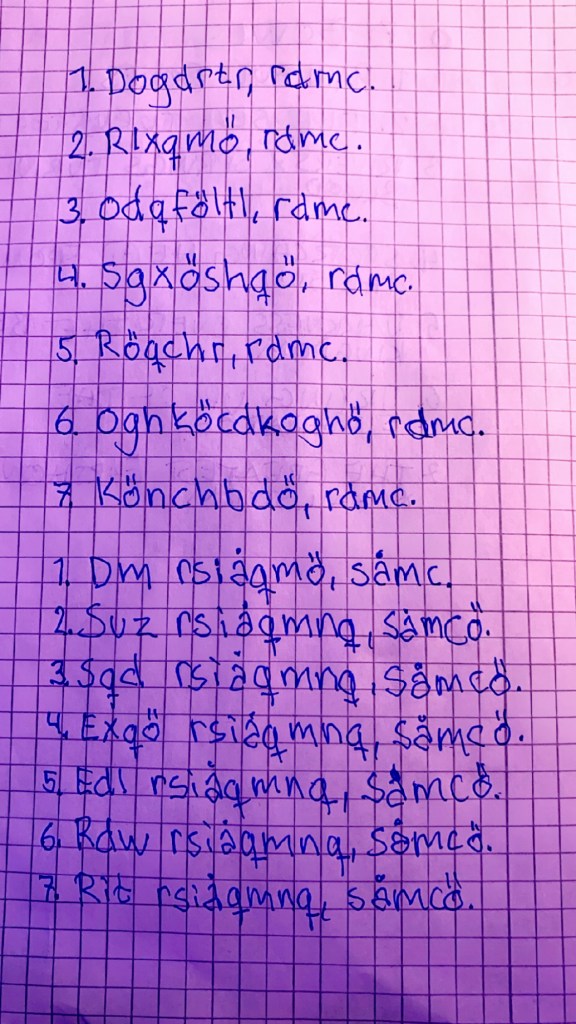 1. Dogdrtr, rdmc.
2. Rlxqmö, rdmc.
3. Odqföltl, rdmc.
4. Sgxöshqö, rdmc.
5. Röqchr, rdmc.
6. Oghköcdkoghö, rdmc.
7. Könchbdö, rdmc.
1. Dm rsiåqmö, såmc.
2. Suz rsiåqmnq, såmcö.
3. Sqd rsiåqmnq, såmcö.
4. Exqö rsiåqmnq, såmcö.
5. Edl rsiåqmnq, såmcö.
6. Rdw rsiåqmnq, såmcö.
7. Rit rsiåqmnq, såmcö.